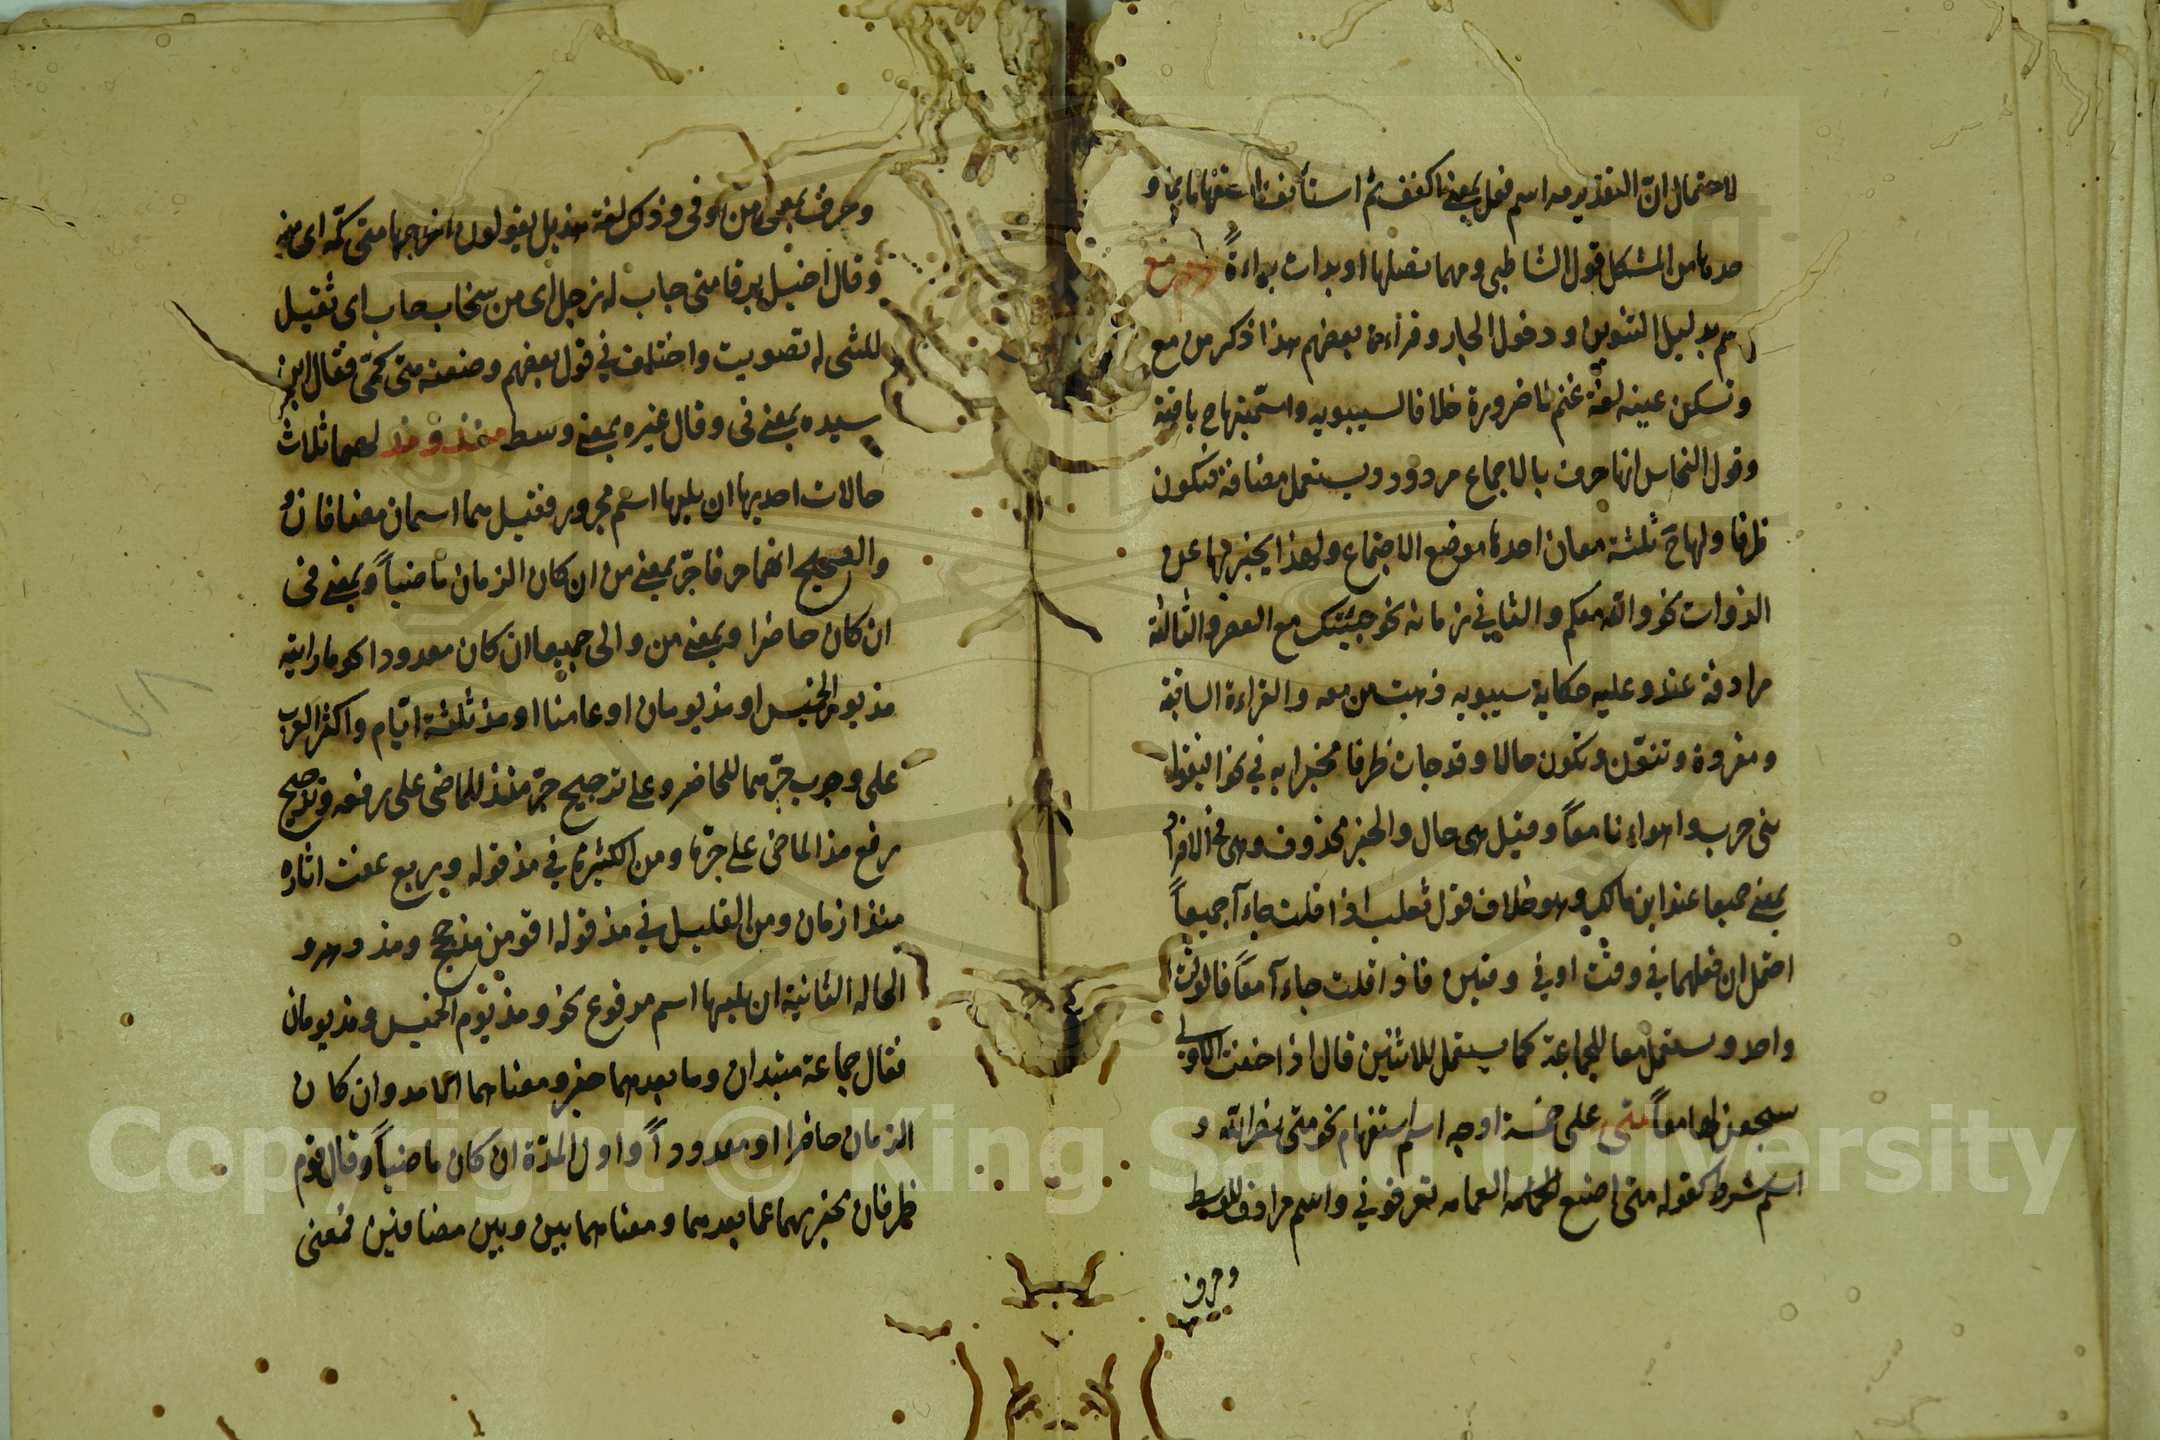 لاحتمال انّ التقدير مه اسم فعل بمعنى اكفف ثم استأنف استفهاما بما و
حدها من المشكل قول الشاطبي ومهما تصلها او بدات براءةً مع
اسم بدليل التنوين ودخول الجار وقرأءة بعضهم هذا ذكر من مع
وتسكن عينه لغة غنم لا ضرورة خلافا لسيبويه واسميتها ح باقية
وقول النحاس انها حرف بالاجماع مردود ويستعمل مضافة فتكون
ظرفا ولها ح ثلثة معان احدها موضع الاجتماع ولهذا يخبر بها عن
الذوات نحو والله معكم والثاني زمانه نحو جئتك مع العصر والثالثة
مرادفة عند وعليه حكاية سيبويه ذهبت من معه والقراءة السابقة
ومفردة وتنون وتكون حالا وقد جات ظرفا مخبرا به في نحو افيقوا
بنى حرب واهواءنا معاً وقيل هى حال والخبر محذوف وهى في الافراد
بمعنى جميعا عند ابن مالك وهو خلاف قول ثعلب اذا قلت جاءآ جميعاً
احتمل ان فعلهما في وقت او في وقتين فاذا قلت جاءآ معاً فالوقت
واحد وستعمل معا للجماعة كما يستعمل للاثنين قال اذا حنت الاولى
سجعن لها معاً متى على خمسة اوجه اسم استفهام نحو متى نصر الله و
اسم شرط كقوله متى اضع العمامه تعرفوني واسم مرادف للوسط
وحرف
وحرف بمعنى من او في وذلك لغة هذيل يقولون اخرجها متى كمّه اى منه
وقال اخيل برقا متى حاب له زجل اى من سحاب حاب اى ثقيل
المشى له تصويت واختلف في قول بعضهم وضعته متى كمّى فقال ابن
سيده بمعنى فى وقال غيره بمعنى وسط منذ ومذ لهما ثلاث
حالات احديها ان يليها اسم مجرور فقيل هما اسمان مضافان
والصحيح انهما حرفا جرّ بمعنى من ان كان الزمان ماضياً وبمعنى فى
ان كان حاضرا وبمعنى من والى جميعا ان كان معدودا كو ما رايته
مذ يوم الخميس او مذ يومان او عامنا او مذ ثلثة ايّام واكثر العرب
على وجوب جرّهما للحاضر وعلى ترجيح جرّ منذ للماضى على رفعه وترجيح
رفع مذ الماضى على جرّها ومن الكثير في مذ قوله وربع عفت اثاره
منذ ازمان ومن القليل في مذ قوله اقوين مذ حجج ومذ دهر و
الحاله الثانية ان يليها اسم مرفوع نحو ومذ يوم الخميس ومذ يومان
فقال جماعة مبتدان وما بعدهما خبر ومعناهما الامد وان كان
الزمان حاضرا او معدوداً واول المدّة ان كان ماضياً وقال قوم
ظرفان مخبر بهما عما بعدهما ومعناهما بين وبين مضافين فمعنى
Copyright © King Saud University